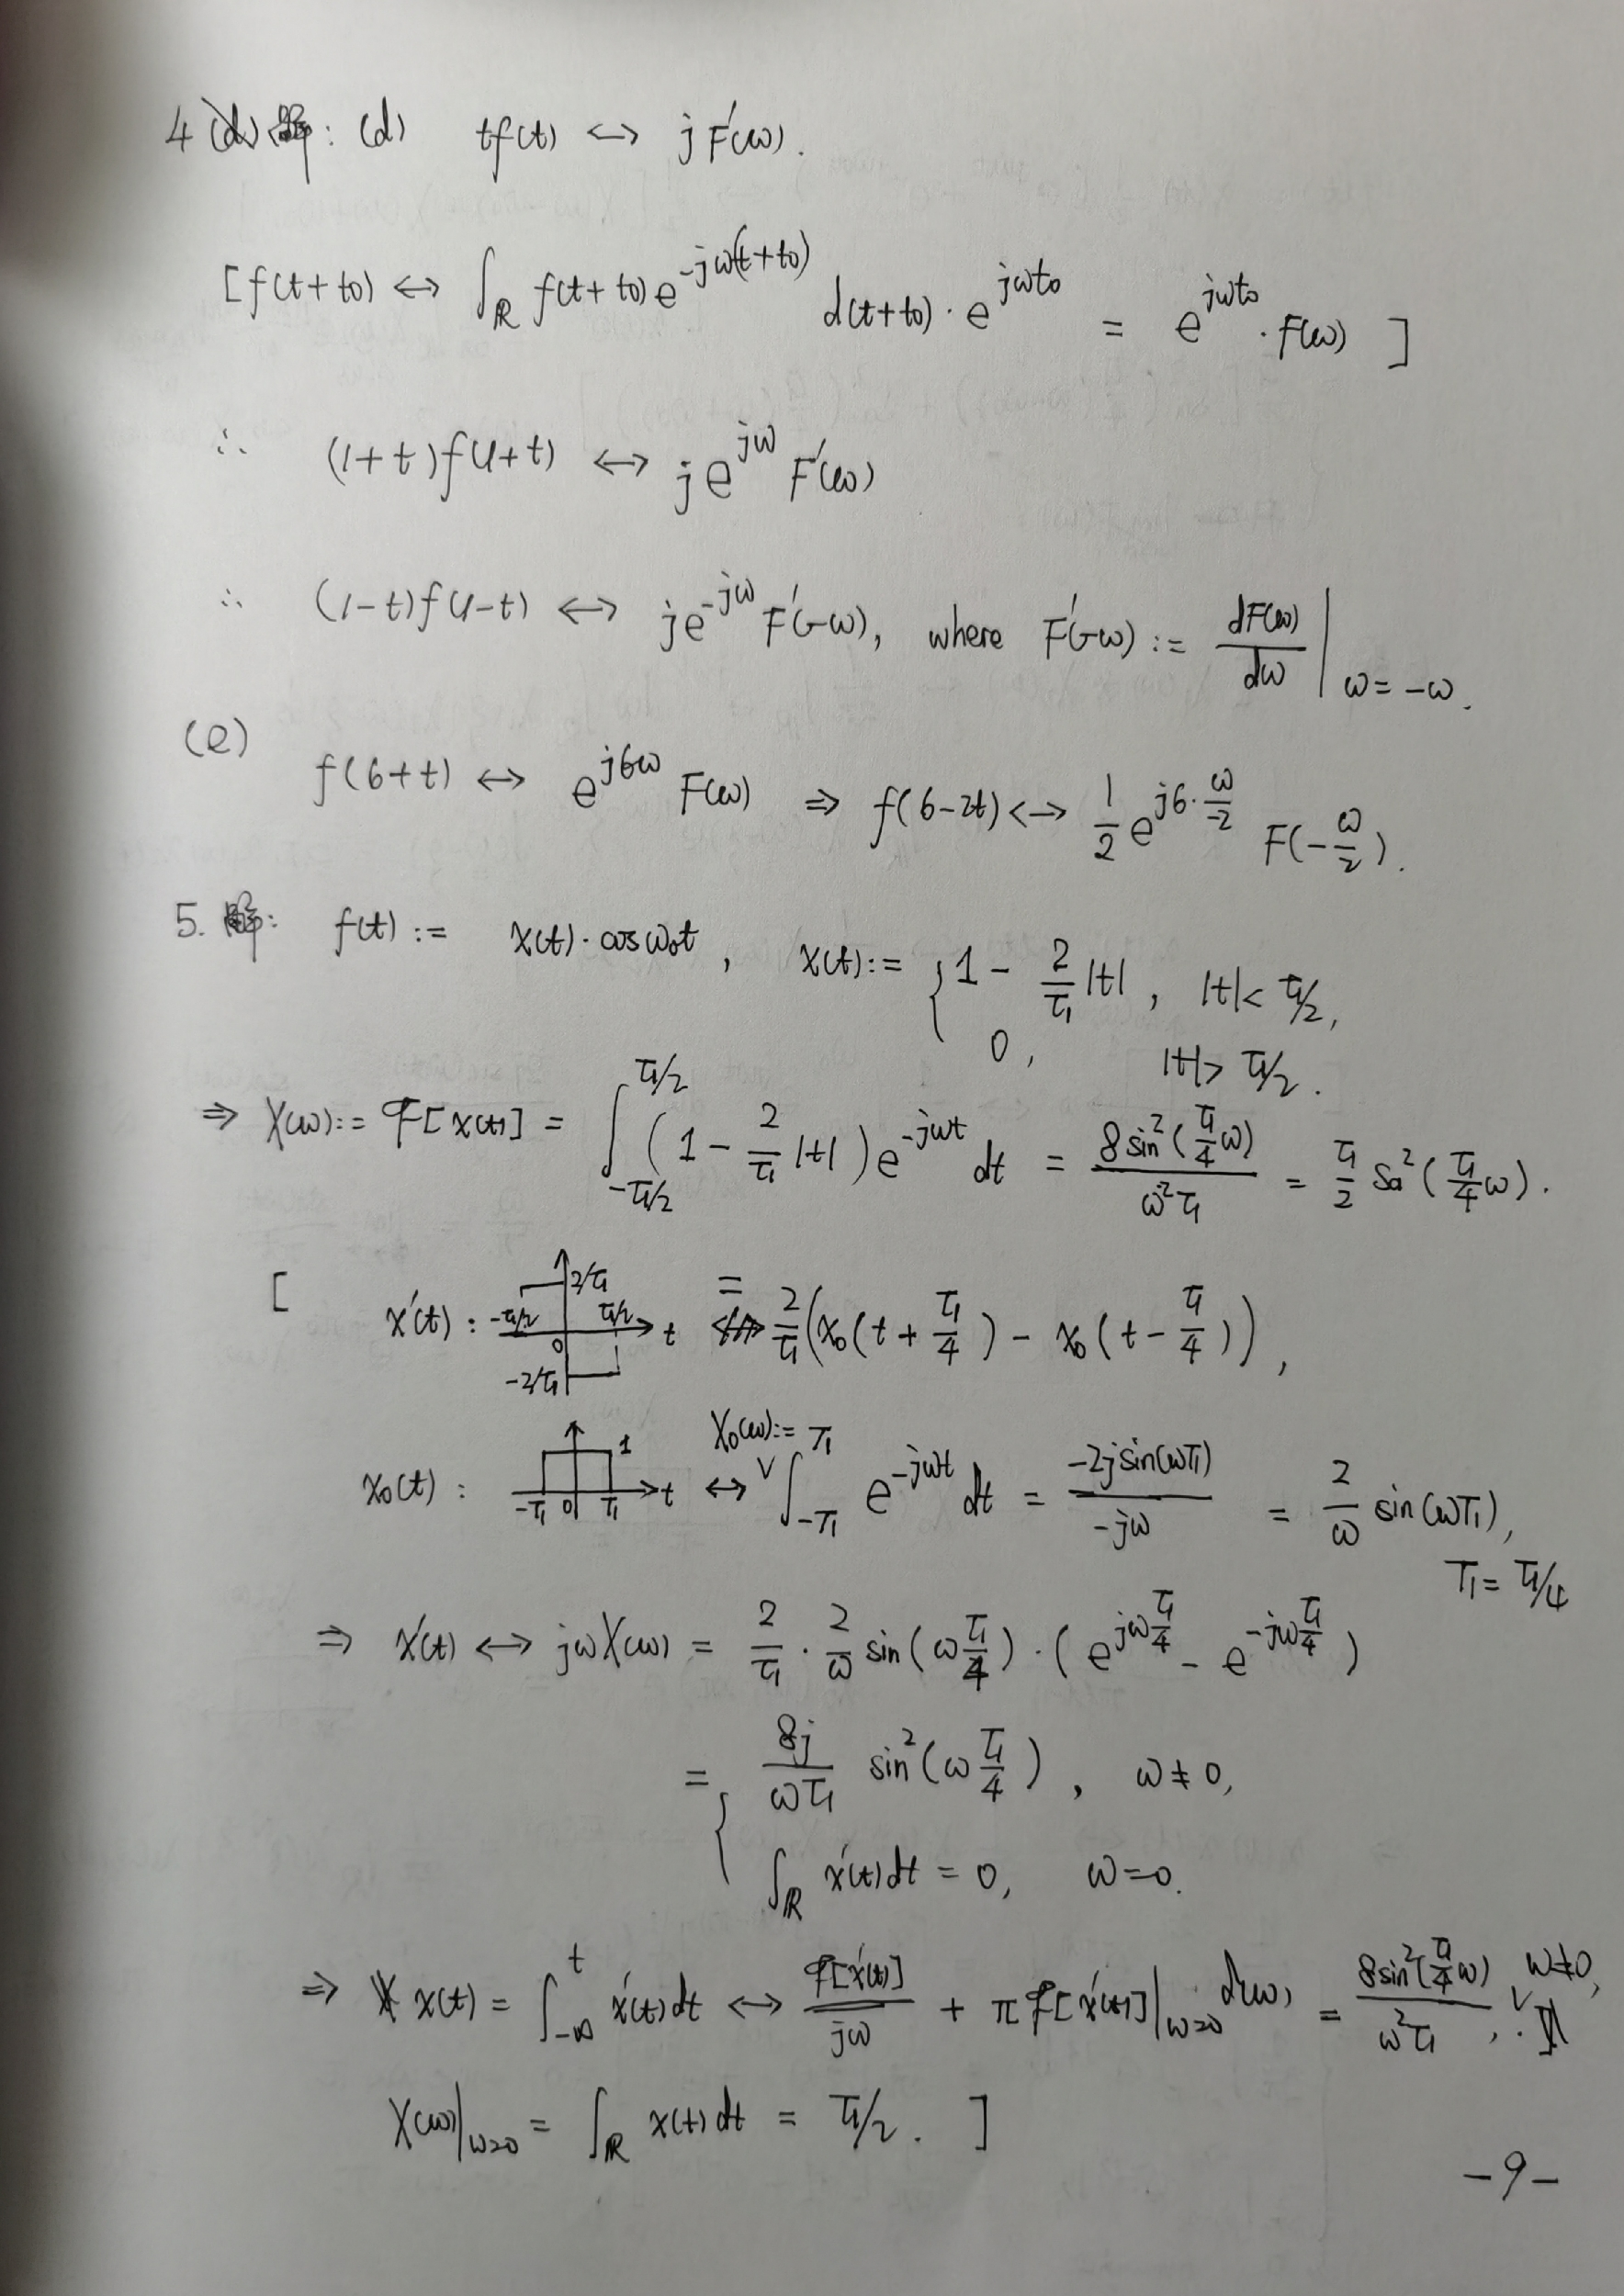 4 解: (d) tf(t) ↔ jF'(ω).
[f(t+t₀) ↔ ∫_ℝ f(t+t₀)e^{-jω(t+t₀)} d(t+t₀)·e^{jωt₀} = e^{jωt₀}·F(ω) ]
∴ (1+t)f(1+t) ↔ je^{jω} F'(ω)
∴ (1-t)f(1-t) ↔ je^{-jω}F'(-ω), where F'(-ω) := dF(ω)/dω |_{ω=-ω}.
(e) f(6+t) ↔ e^{j6ω} F(ω) ⇒ f(6-2t) ↔ 1/2 e^{j6·ω/-2} F(-ω/2).
5. 解: f(t) := x(t)·cosω₀t, x(t) := { 1 - 2/τ₁ |t|, |t| < τ₁/2,
0, |t| > τ₁/2.
⇒ X(ω) := ℱ[x(t)] = ∫_{-τ₁/2}^{τ₁/2} (1 - 2/τ₁ |t|)e^{-jωt} dt = 8sin²(τ₁/4 ω)/ω²τ₁ = τ₁/2 Sa²(τ₁/4 ω).
[ x'(t): 2/τ₁ -τ₁/2 τ₁/2 0 t -2/τ₁ = 2/τ₁ (x₀(t + τ₁/4) - x₀(t - τ₁/4)),
x₀(t): 1 -T₁ 0 T₁ t ↔ X₀(ω) := ∫_{-T₁}^{T₁} e^{-jωt} dt = -2jsin(ωT₁)/-jω = 2/ω sin(ωT₁),
T₁ = τ₁/4
⇒ x'(t) ↔ jωX(ω) = 2/τ₁ · 2/ω sin(ω τ₁/4)·(e^{jω τ₁/4} - e^{-jω τ₁/4})
= { 8j/ωτ₁ sin²(ω τ₁/4), ω ≠ 0,
∫_ℝ x'(t)dt = 0, ω=0.
⇒ x(t) = ∫_{-∞}^{t} x'(t)dt ↔ ℱ[x'(t)]/jω + πℱ[x'(t)]|_{ω=0} δ(ω) = 8sin²(τ₁/4 ω)/ω²τ₁, ω≠0,
X(ω)|_{ω=0} = ∫_ℝ x(t)dt = τ₁/2. ]
-9-